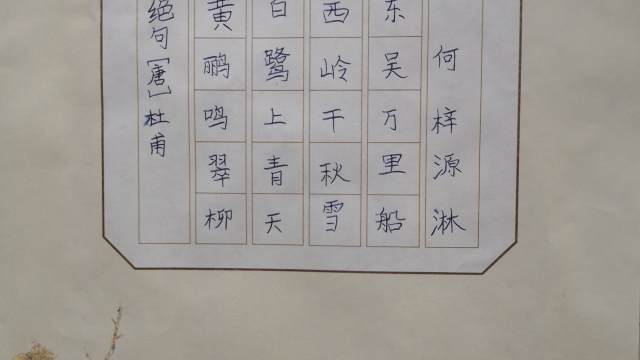 绝句[唐]杜甫
黄鹂鸣翠柳
白鹭上青天
西岭千秋雪
东吴万里船
何梓源淋